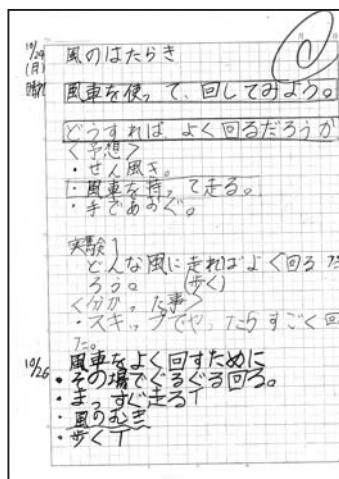 10/24
(月)
晴れ
風のはたらき
風車を使って、回してみよう。
どうすれば よく回るだろうか
<予想>
・せん風き。
・風車を持って走る。
・手であおぐ。
実験1
どんな風に走ればよく回るだ
ろう。 (歩く)
<分かった事>
・スキップでやったらすごく回
た。
10/26
風車をよく回すために
・その場でぐるぐる回る。
・まっすぐ走るT
・風のむき
・歩くT